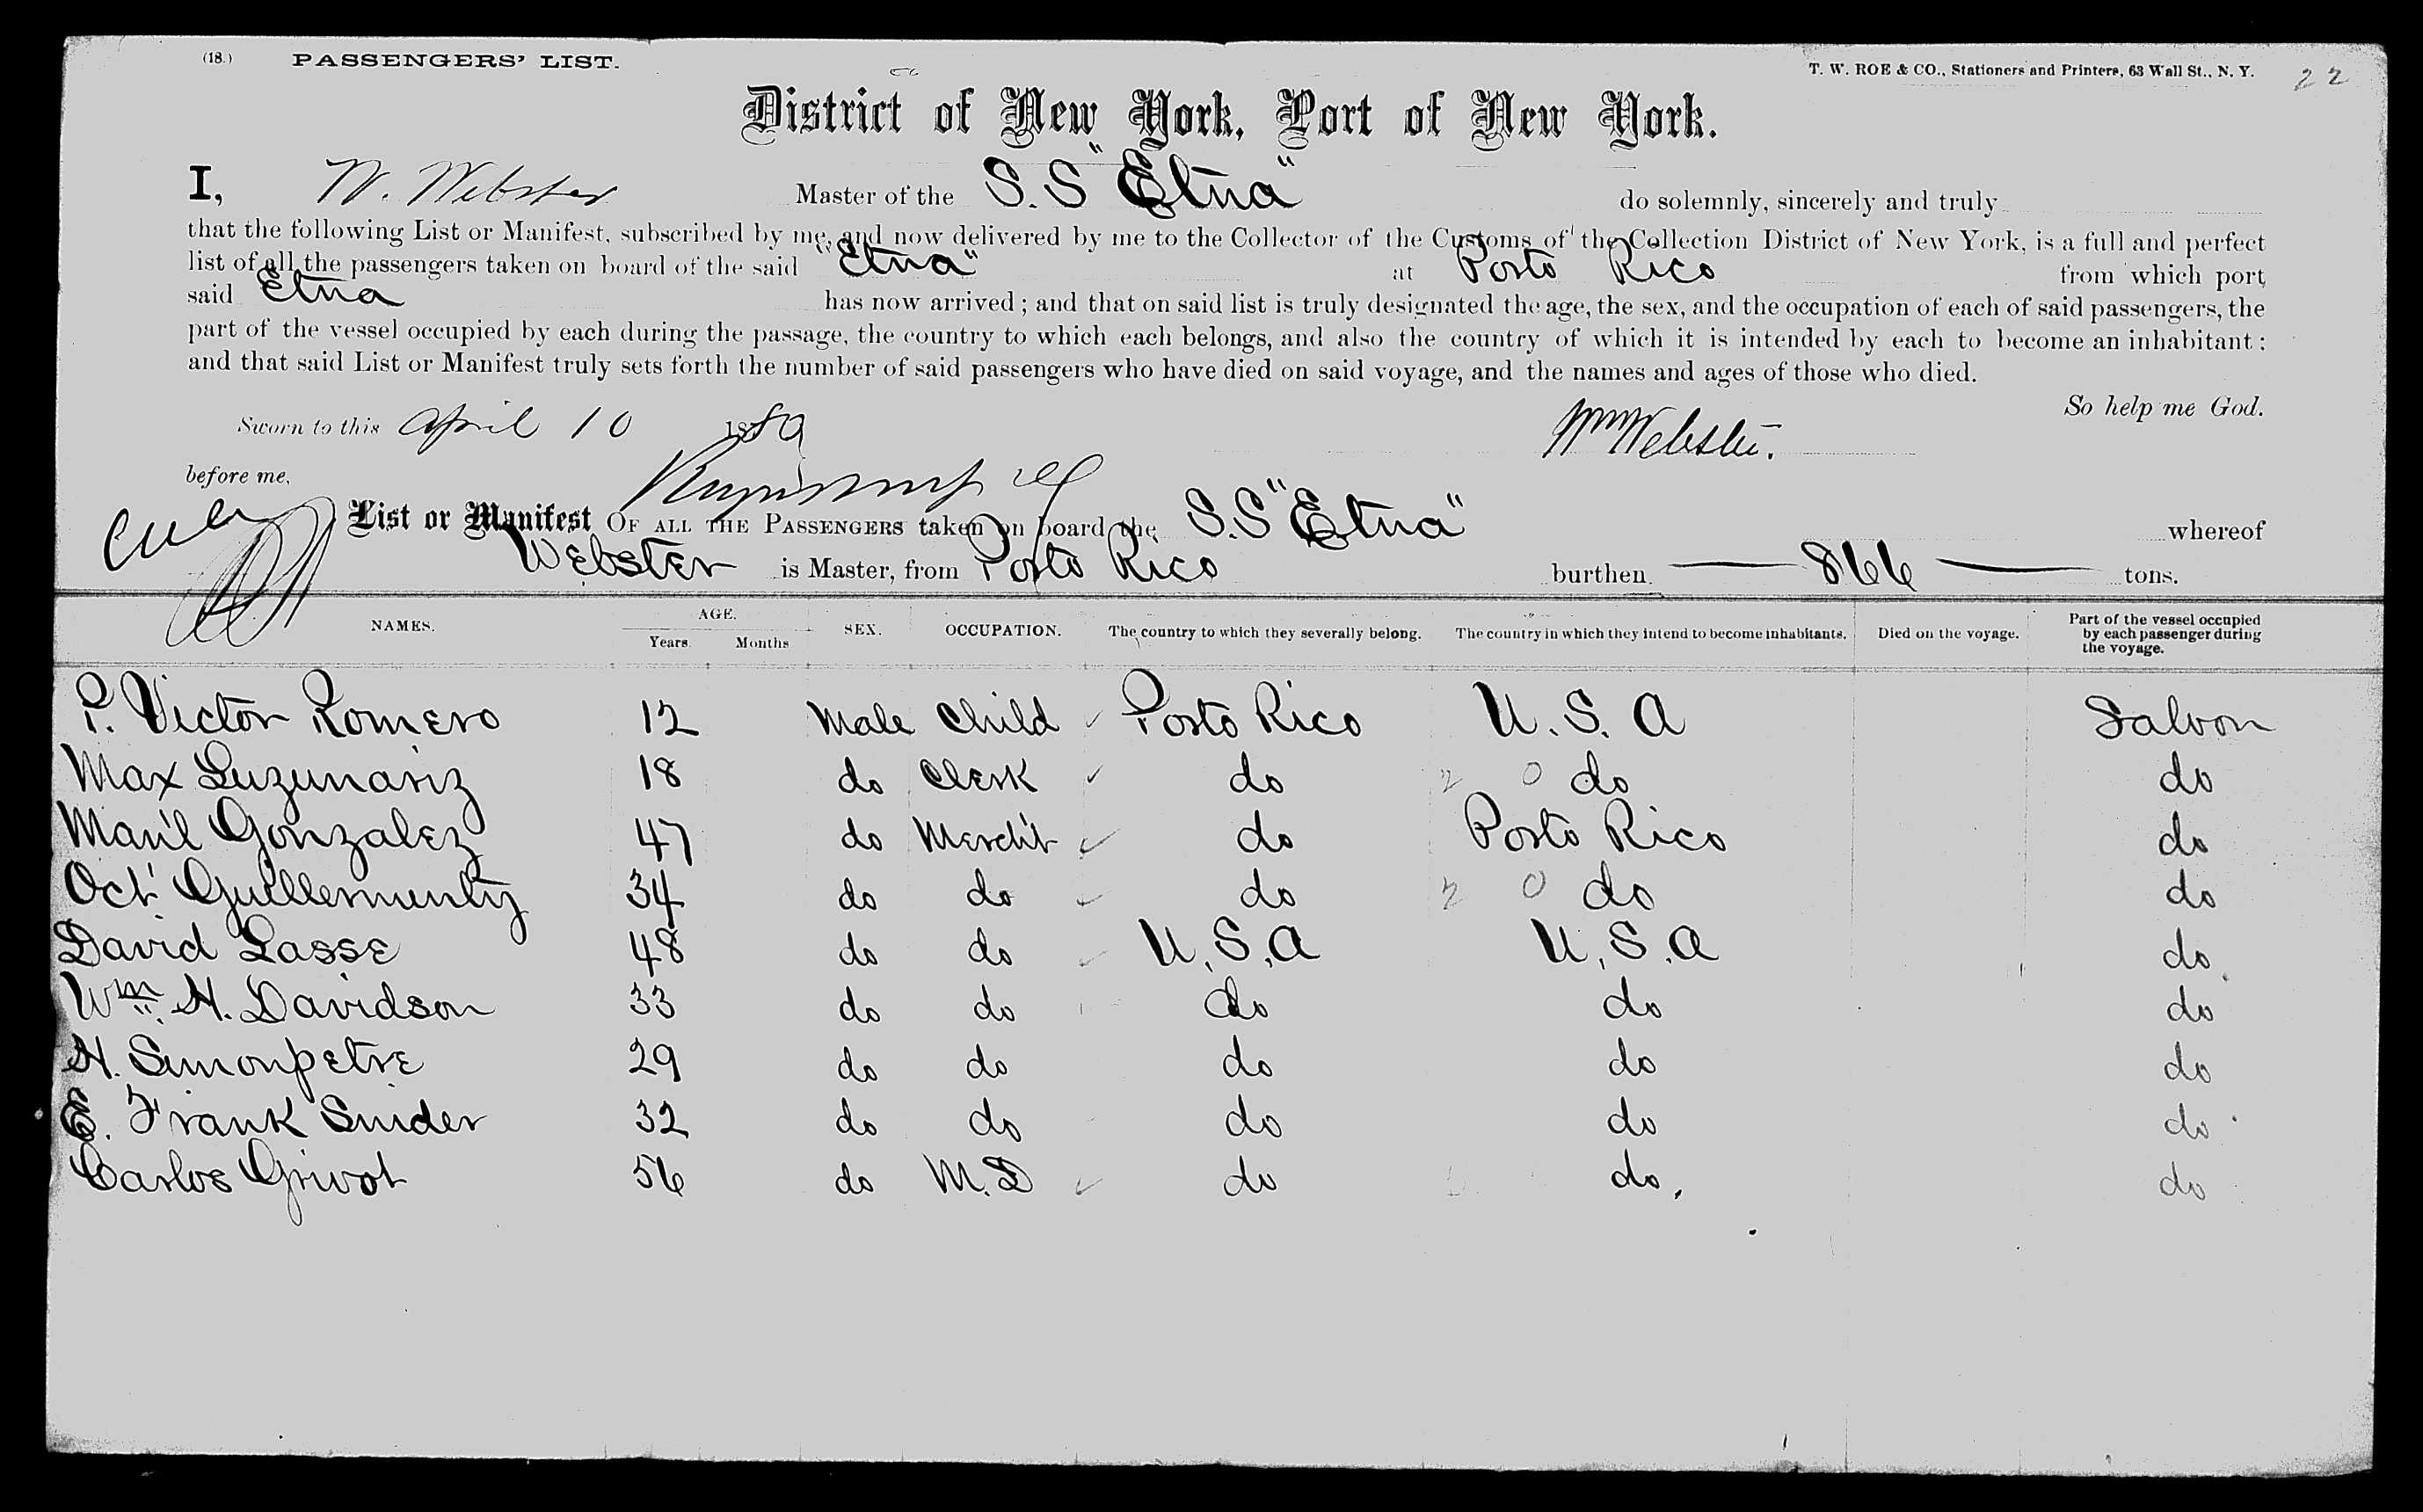 (18.) PASSENGERS' LIST. T. W. ROE & CO., Stationers and Printers, 63 Wall St., N. Y. 22
District of New York, Port of New York.
I, W. Webster Master of the S.S "Etna" do solemnly, sincerely and truly
that the following List or Manifest, subscribed by me, and now delivered by me to the Collector of the Customs of the Collection District of New York, is a full and perfect
list of all the passengers taken on board of the said "Etna" at Porto Rico from which port
said Etna has now arrived; and that on said list is truly designated the age, the sex, and the occupation of each of said passengers, the
part of the vessel occupied by each during the passage, the country to which each belongs, and also the country of which it is intended by each to become an inhabitant;
and that said List or Manifest truly sets forth the number of said passengers who have died on said voyage, and the names and ages of those who died.
So help me God.
Sworn to this April 10 1889 Wm Webster.
before me,
List or Manifest OF ALL THE PASSENGERS taken on board the S.S "Etna" whereof
Webster is Master, from Porto Rico burthen 866 tons.
NAMES. AGE. Years Months SEX. OCCUPATION. The country to which they severally belong. The country in which they intend to become inhabitants. Died on the voyage. Part of the vessel occupied by each passenger during the voyage.
P. Victor Romero 12 Male Child Porto Rico U. S. A Saloon
Max Luzunariz 18 do Clerk do 2 0 do do
Man'l Gonzalez 47 do Merch't do Porto Rico do
Oct' 34 do do do 2 0 do do
David Lasse 48 do do U.S.A U.S.A do
Wm H. Davidson 33 do do do do do
H. Simonpetre 29 do do do do do
E. Frank Snider 32 do do do do do
Carlos Grivot 56 do M.D do do. do